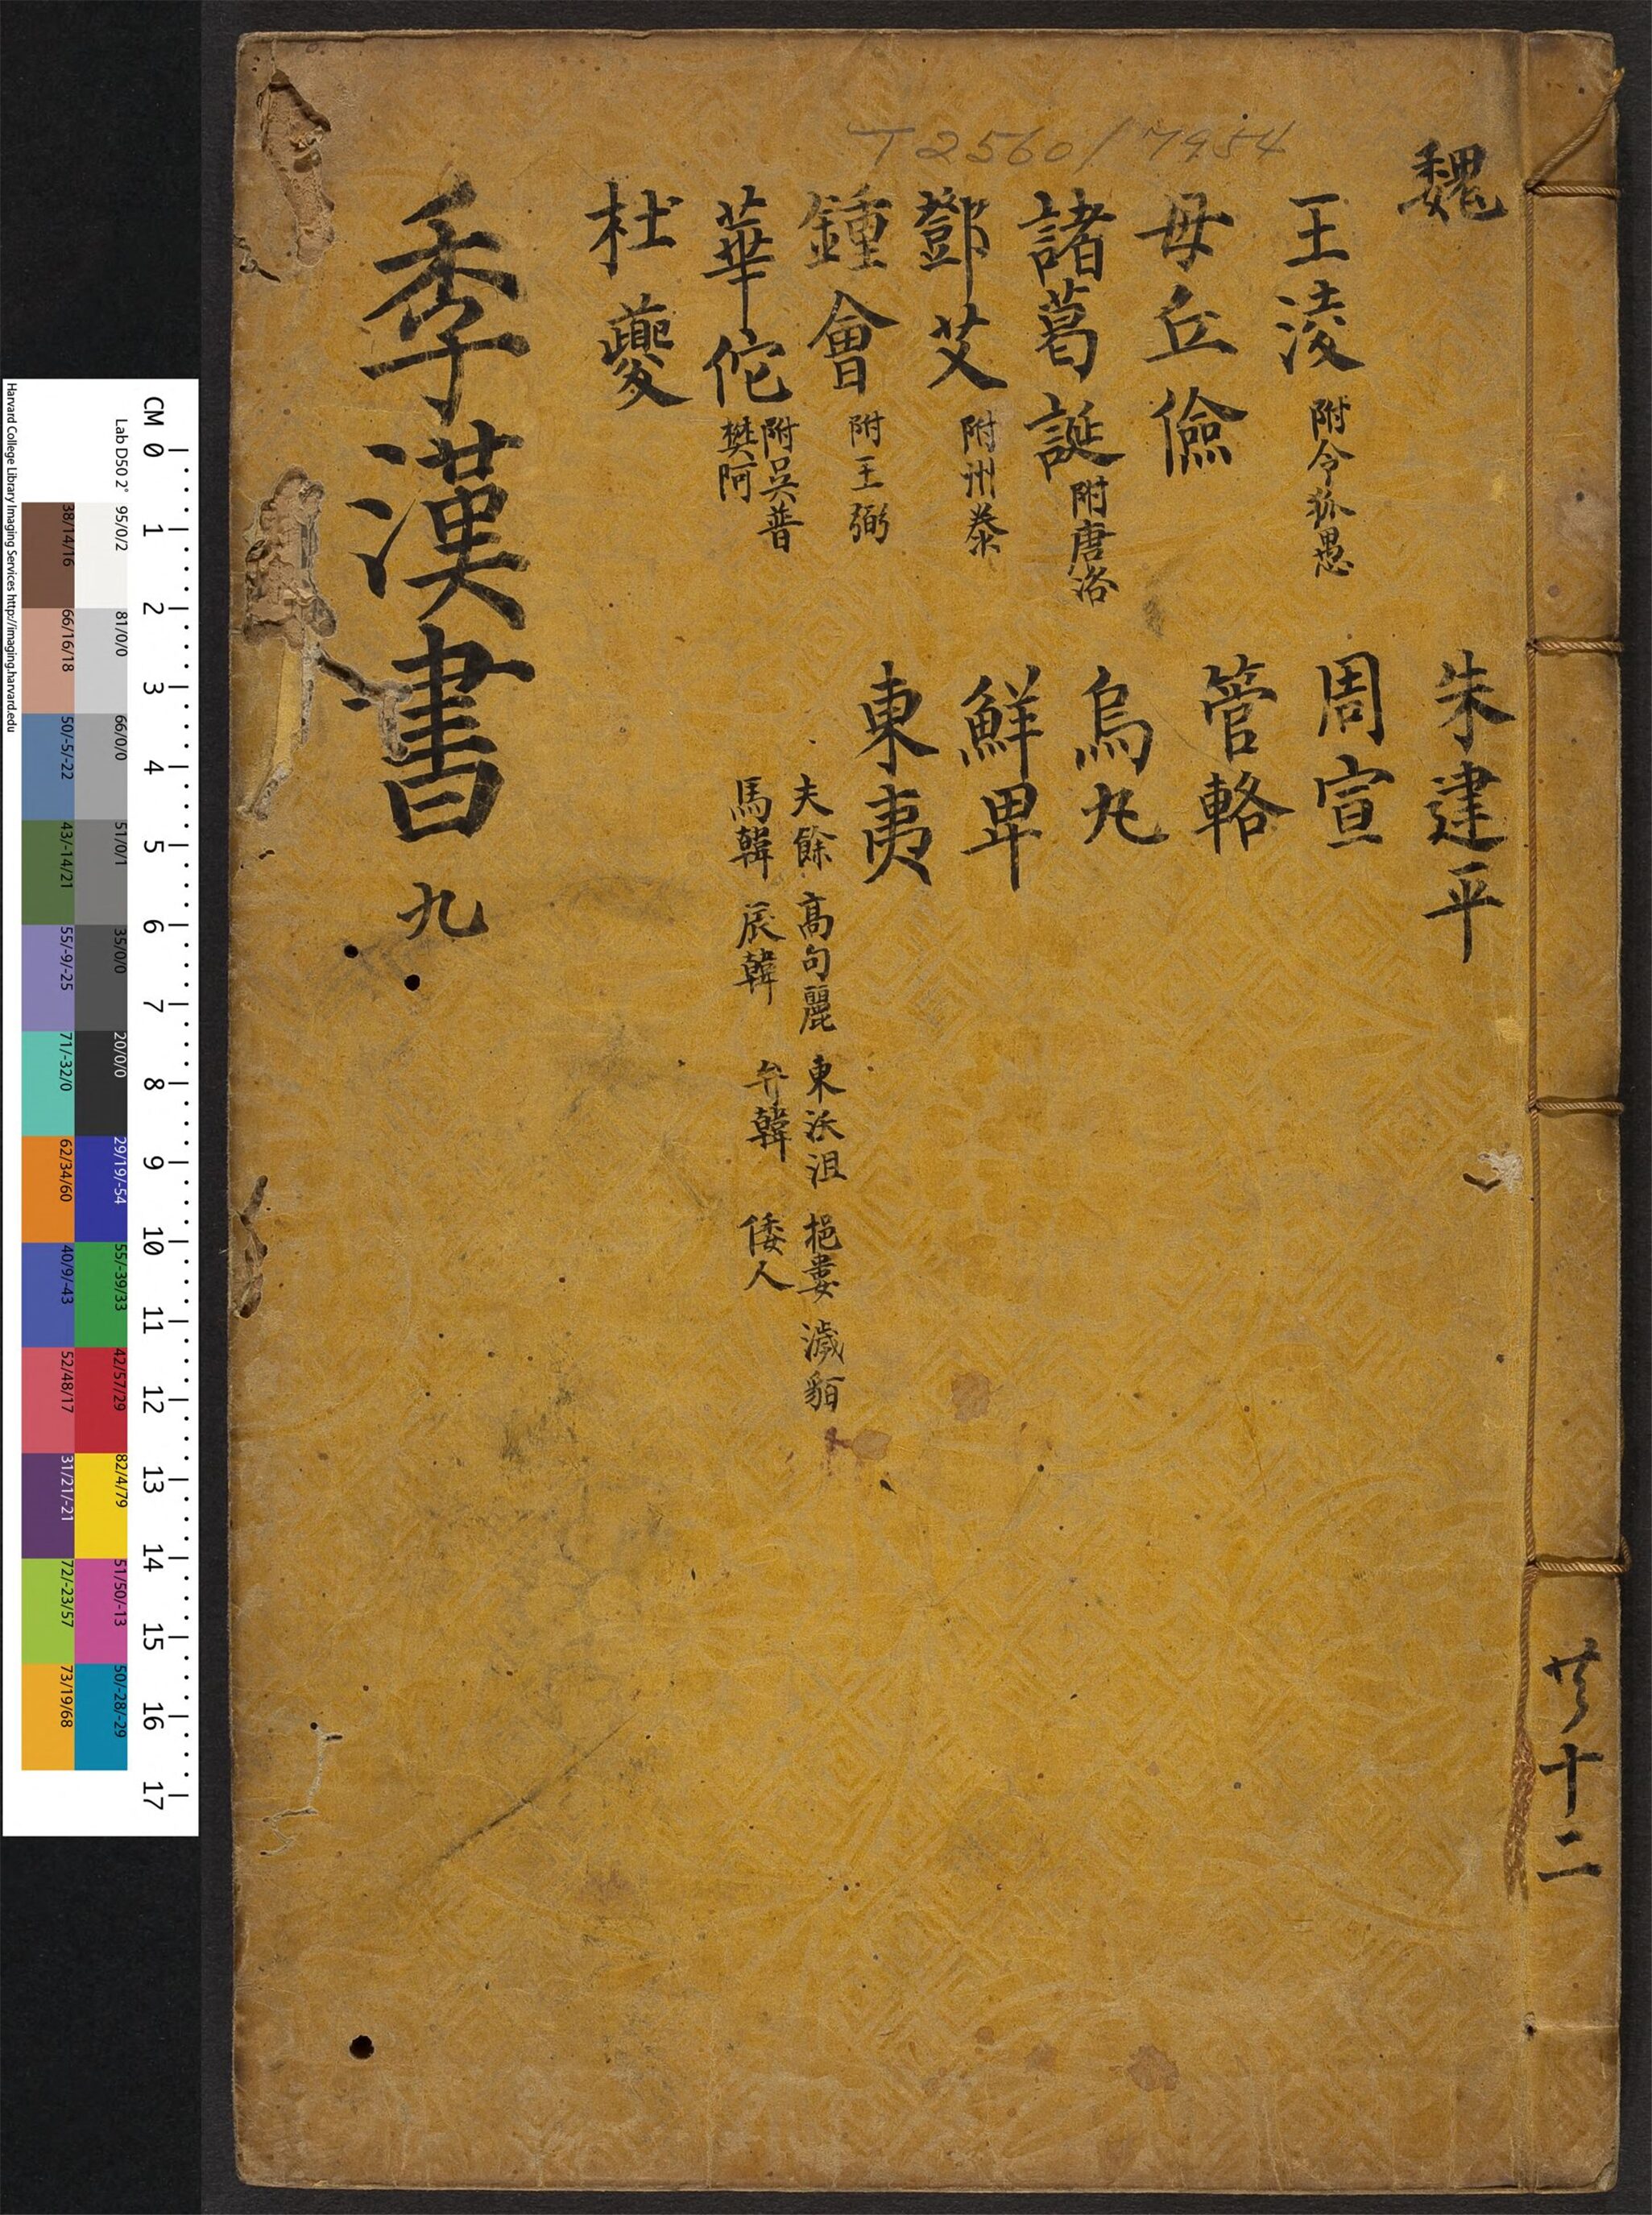 T2560/7954
魏
王淩 附令狐愚
毋丘儉
諸葛誕 附唐洛
鄧艾 附州泰
鍾會 附王弼
華佗 附吳普
樊阿
杜夔
朱建平
周宣
管輅
烏丸
鮮卑
東夷
夫餘 高句麗 東沃沮 挹婁 濊貊
馬韓 辰韓 弁韓 倭人
季漢書 九
共十二
CM 0 1 2 3 4 5 6 7 8 9 10 11 12 13 14 15 16 17
Lab D50 2°
95/0/2
81/0/0
66/0/0
51/0/1
35/0/0
20/0/0
29/19/-54
55/-39/33
42/57/29
82/4/79
51/50/-13
50/-28/-29
38/14/16
66/16/18
50/-5/-22
43/-14/21
55/-9/-25
71/-32/0
62/34/60
40/9/-43
52/48/17
31/21/-21
72/-23/57
73/19/68
Harvard College Library Imaging Services http://imaging.harvard.edu